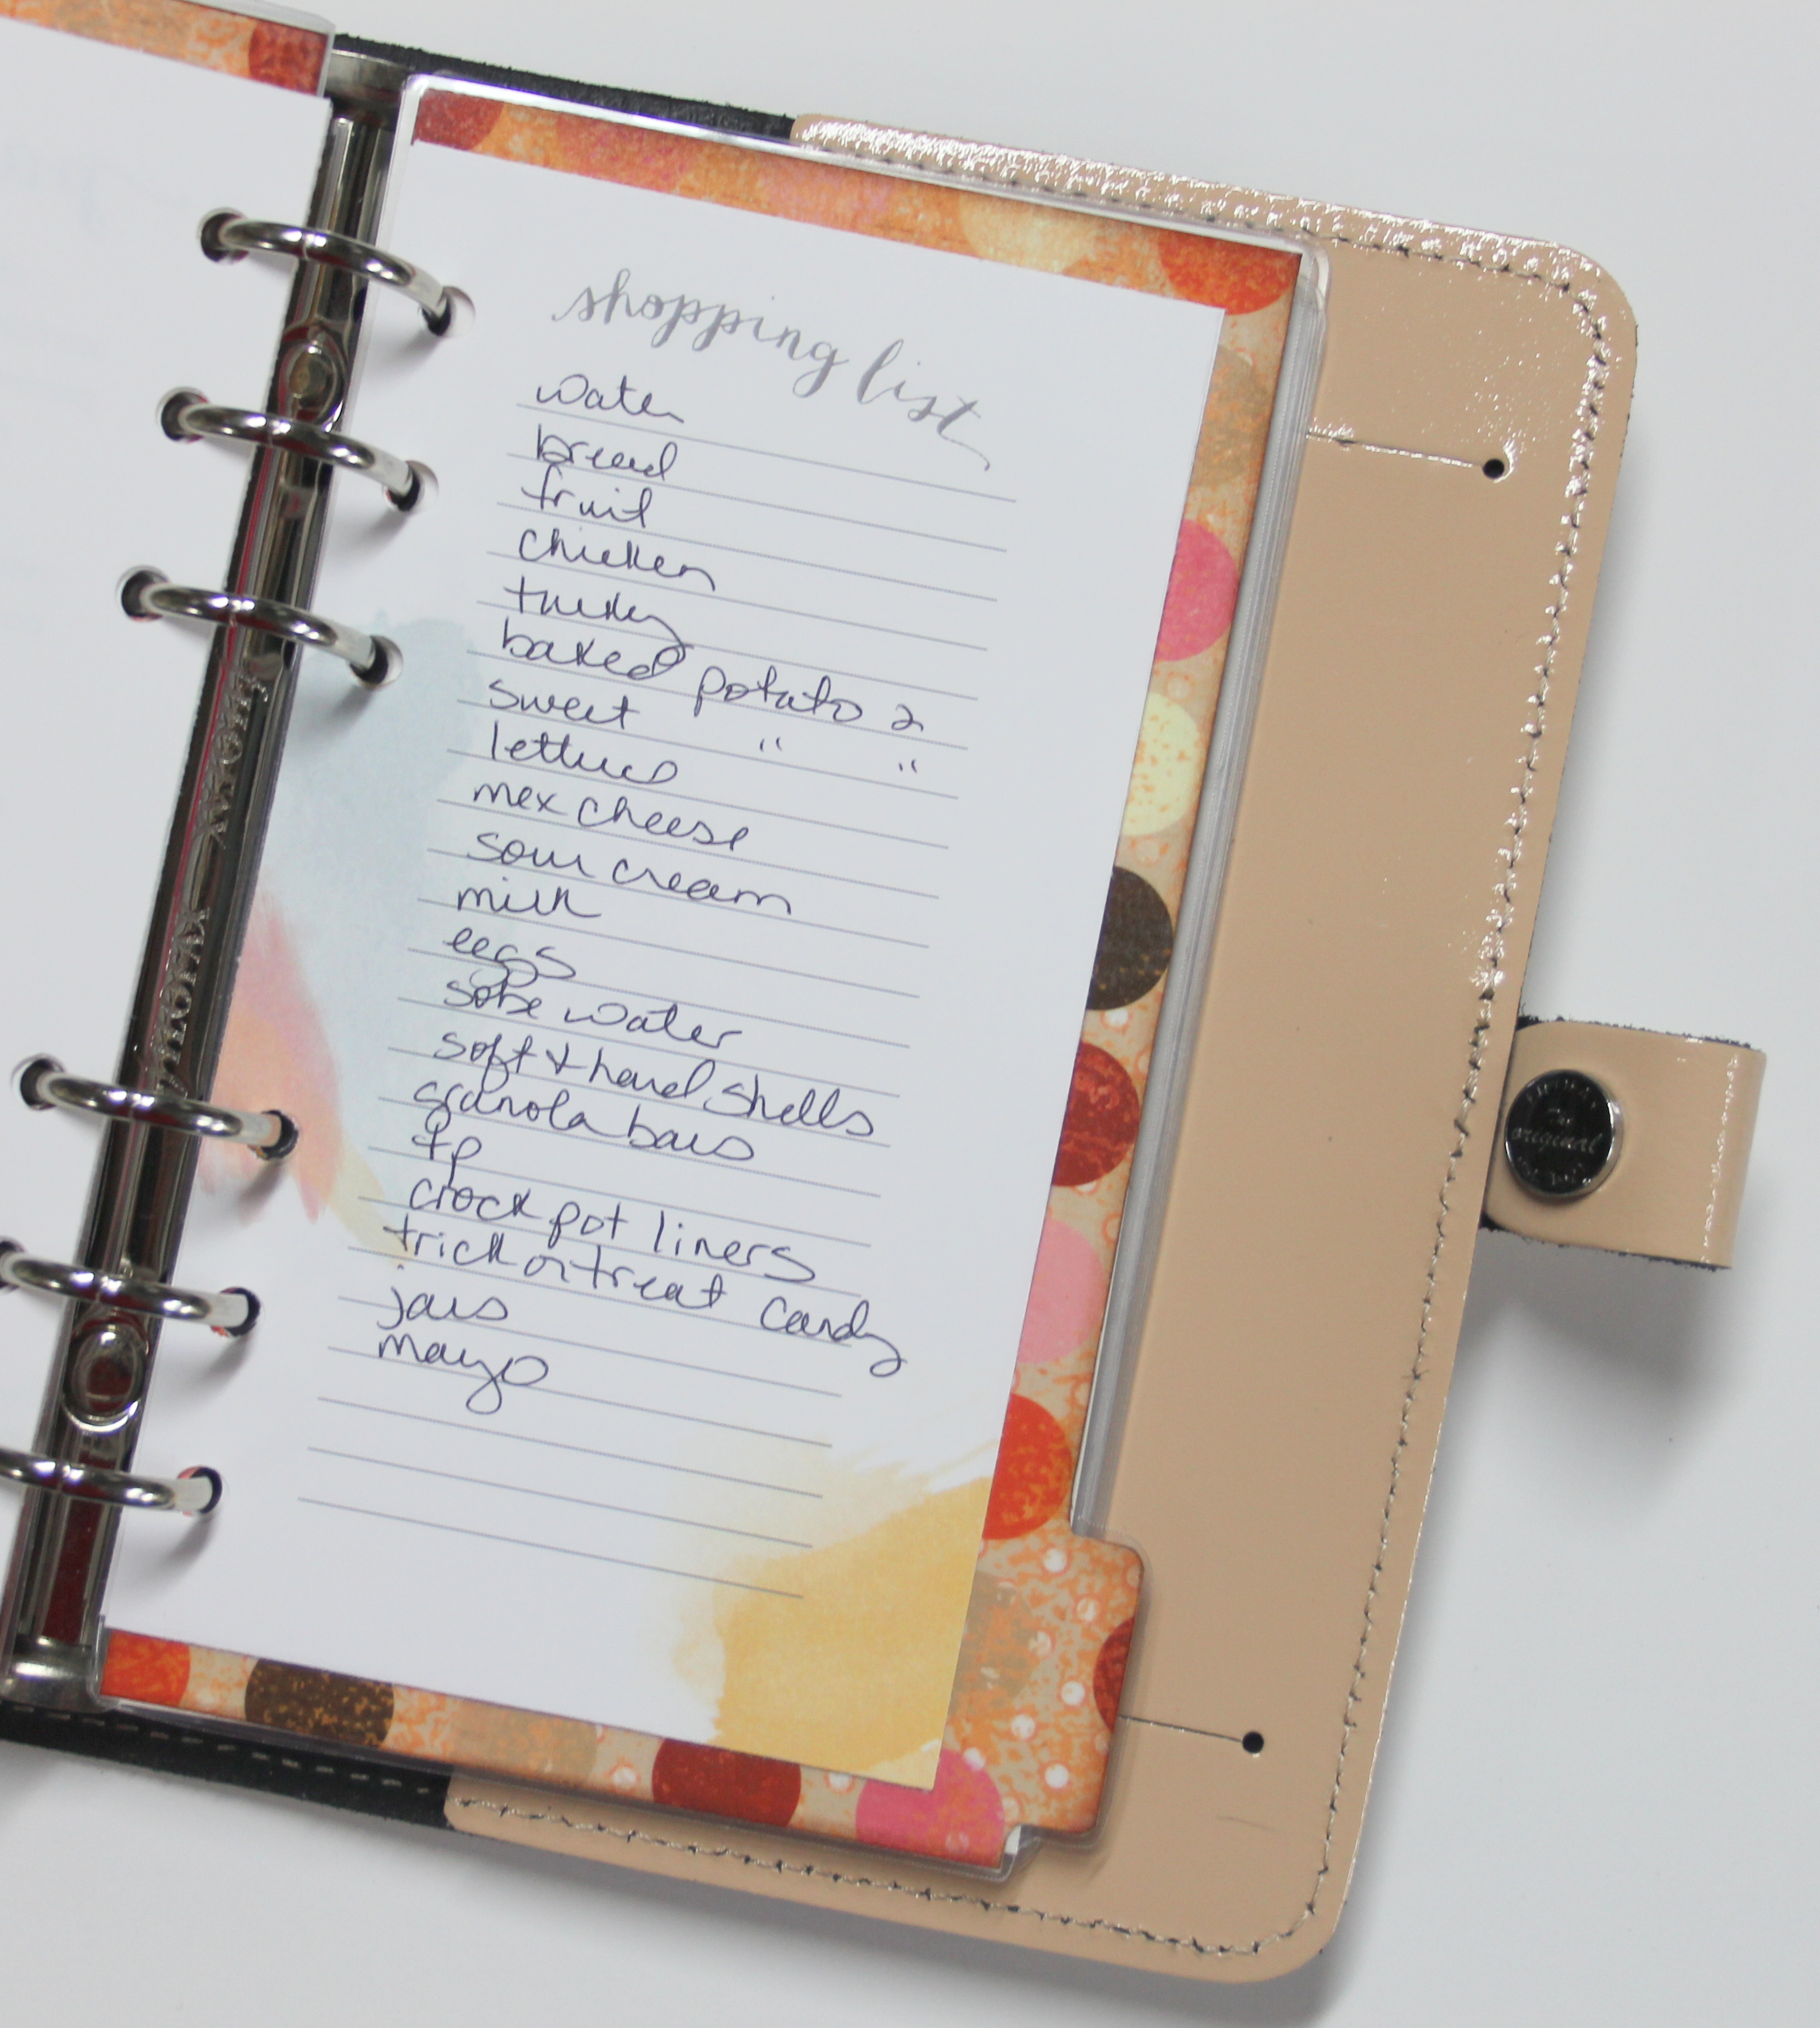 shopping list
water
bread
fruit
chicken
turkey
baked potato 2
sweet " "
lettuce
mex cheese
sour cream
milk
eegs
sobe water
soft & hard shells
granola bars
tp
crock pot liners
trick or treat candy
jars
mayo
The
original